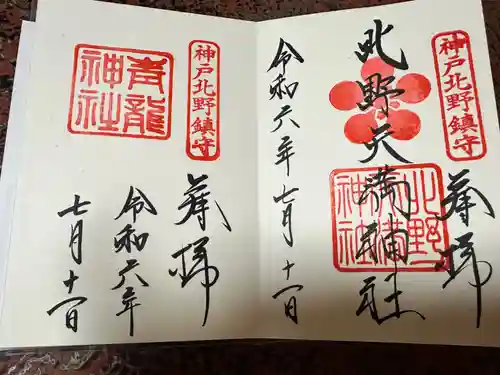 神戸北野鎮守
奉拝
北野天満神社
北野天満神社
令和六年 七月 十一日
神戸北野鎮守
奉拝
青龍神社
令和六年
七月十一日